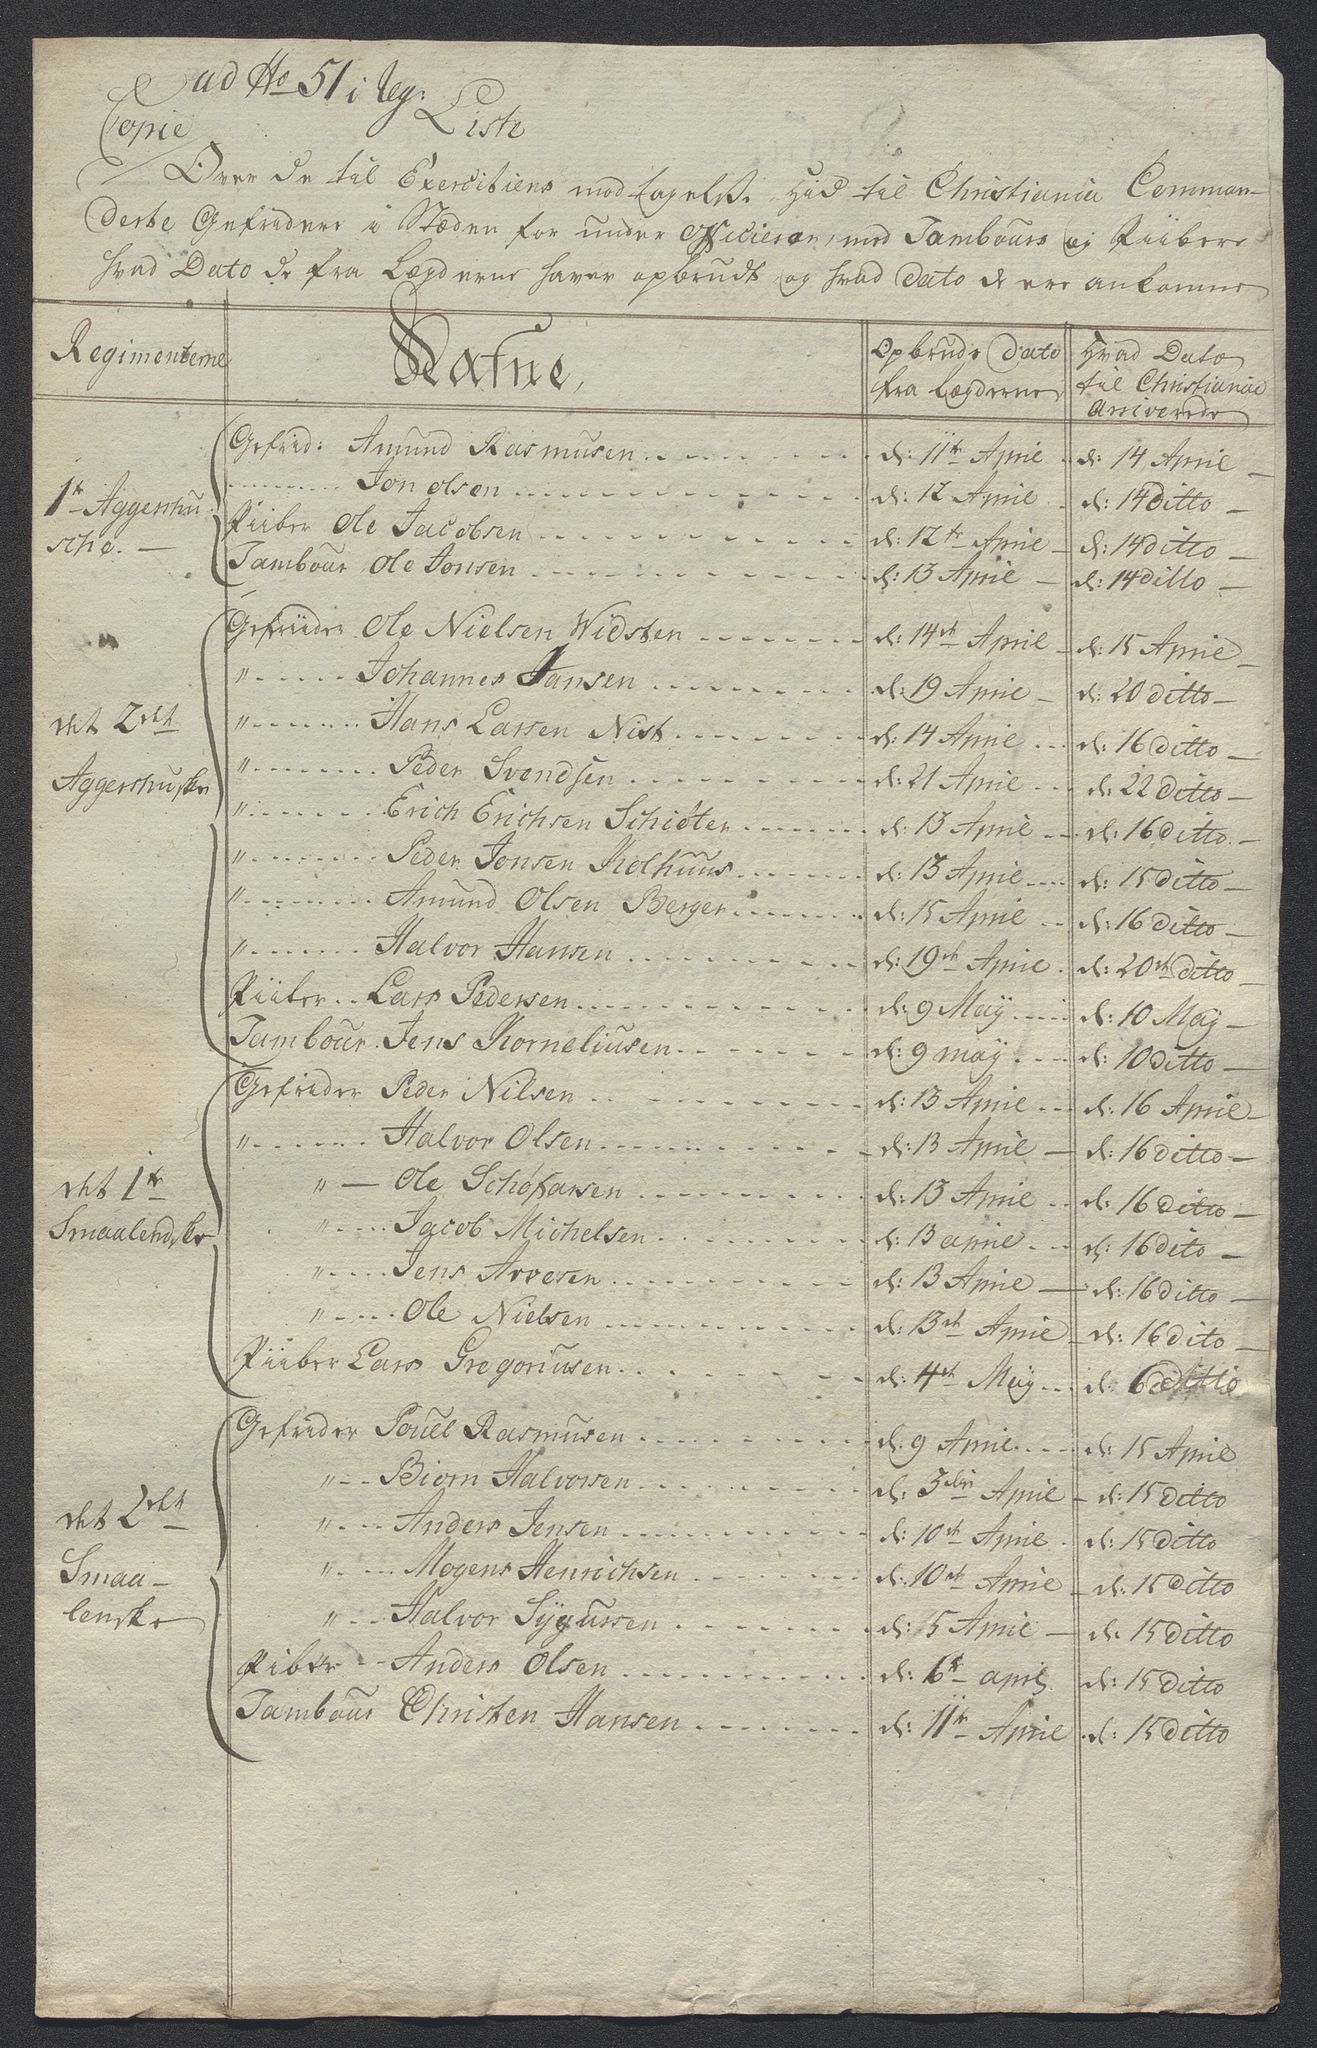 ad No 51 i Reg:
Copie
Liste
Over de til Exercitiens modtagelse hid til Christiania Comman-
derte Gefridere i Stæden for under Officierer, med Tambours og Piibere
hvad Dato de fra Lægderne haver opbrudt og hvad Dato de ere ankomne
Regimenterne Nafne, Opbruds Dato fra Lægderne Hvad Dato til Christiania Arriverede
1te Aggershusche. —
Gefrid: Amund Rasmusen d: 11te April d: 14 April —
Jon Olsen d: 12 April d: 14 Ditto —
Piiber Ole Jacobsen d: 12te April — d: 14 ditto —
Tambour Ole Jonsen d: 13 April — d: 14 Ditto —
det 2det Aggershuske
Gefriider Ole Nielsen Widsten d: 14de April — d: 15 April —
" Johannes Jansen d: 19 April — d: 20 ditto —
" Hans Larsen Nist d: 14 April d: 16 ditto —
" Peder Svendsen d: 21 April d: 22 Ditto —
" Erich Erichsen Schiøter d: 13 April d: 16 ditto —
" Peder Jonsen Kolhuus d: 13 April d: 15 ditto —
" Amund Olsen Berger d: 15 April d: 16 ditto —
" Halvor Hansen d: 19de April d: 20de ditto —
Piiber Lars Pedersen d: 9 Maÿ d: 10 Maÿ —
Tambour Jens Korneliusen d: 9 maÿ d: 10 ditto —
det 1te Smaalendske
Gefrider Peder Nilsen d: 13 April d: 16 April —
" Halvor Olsen d: 13 April — d: 16 ditto —
" — Ole d: 13 April d: 16 ditto —
" Jacob Michelsen d: 13 april d: 16 dito —
" Jens Arvesen d: 13 April — d: 16 ditto —
" Ole Nielsen d: 13de April d: 16 dito —
Piiber Lars Gregoriusen d: 4de Maÿ d: 6 ditto
det 2det Smaa-lenske
Gefrider Pouel Rasmusen d: 9 April d: 15 April
" Biørn Halvorsen d: April — d: 15 Ditto
" Anders Jensen d: 10de April d: 15 Ditto
" Mogens Henrichsen d: 10de April — d: 15 Ditto
" Halvor Sÿgursen d: 5 April — d: 15 ditto
Piber Anders Olsen d: 6te april d: 15 Ditto
Tambour Christen Hansen d: 11te April d: 15 Ditto